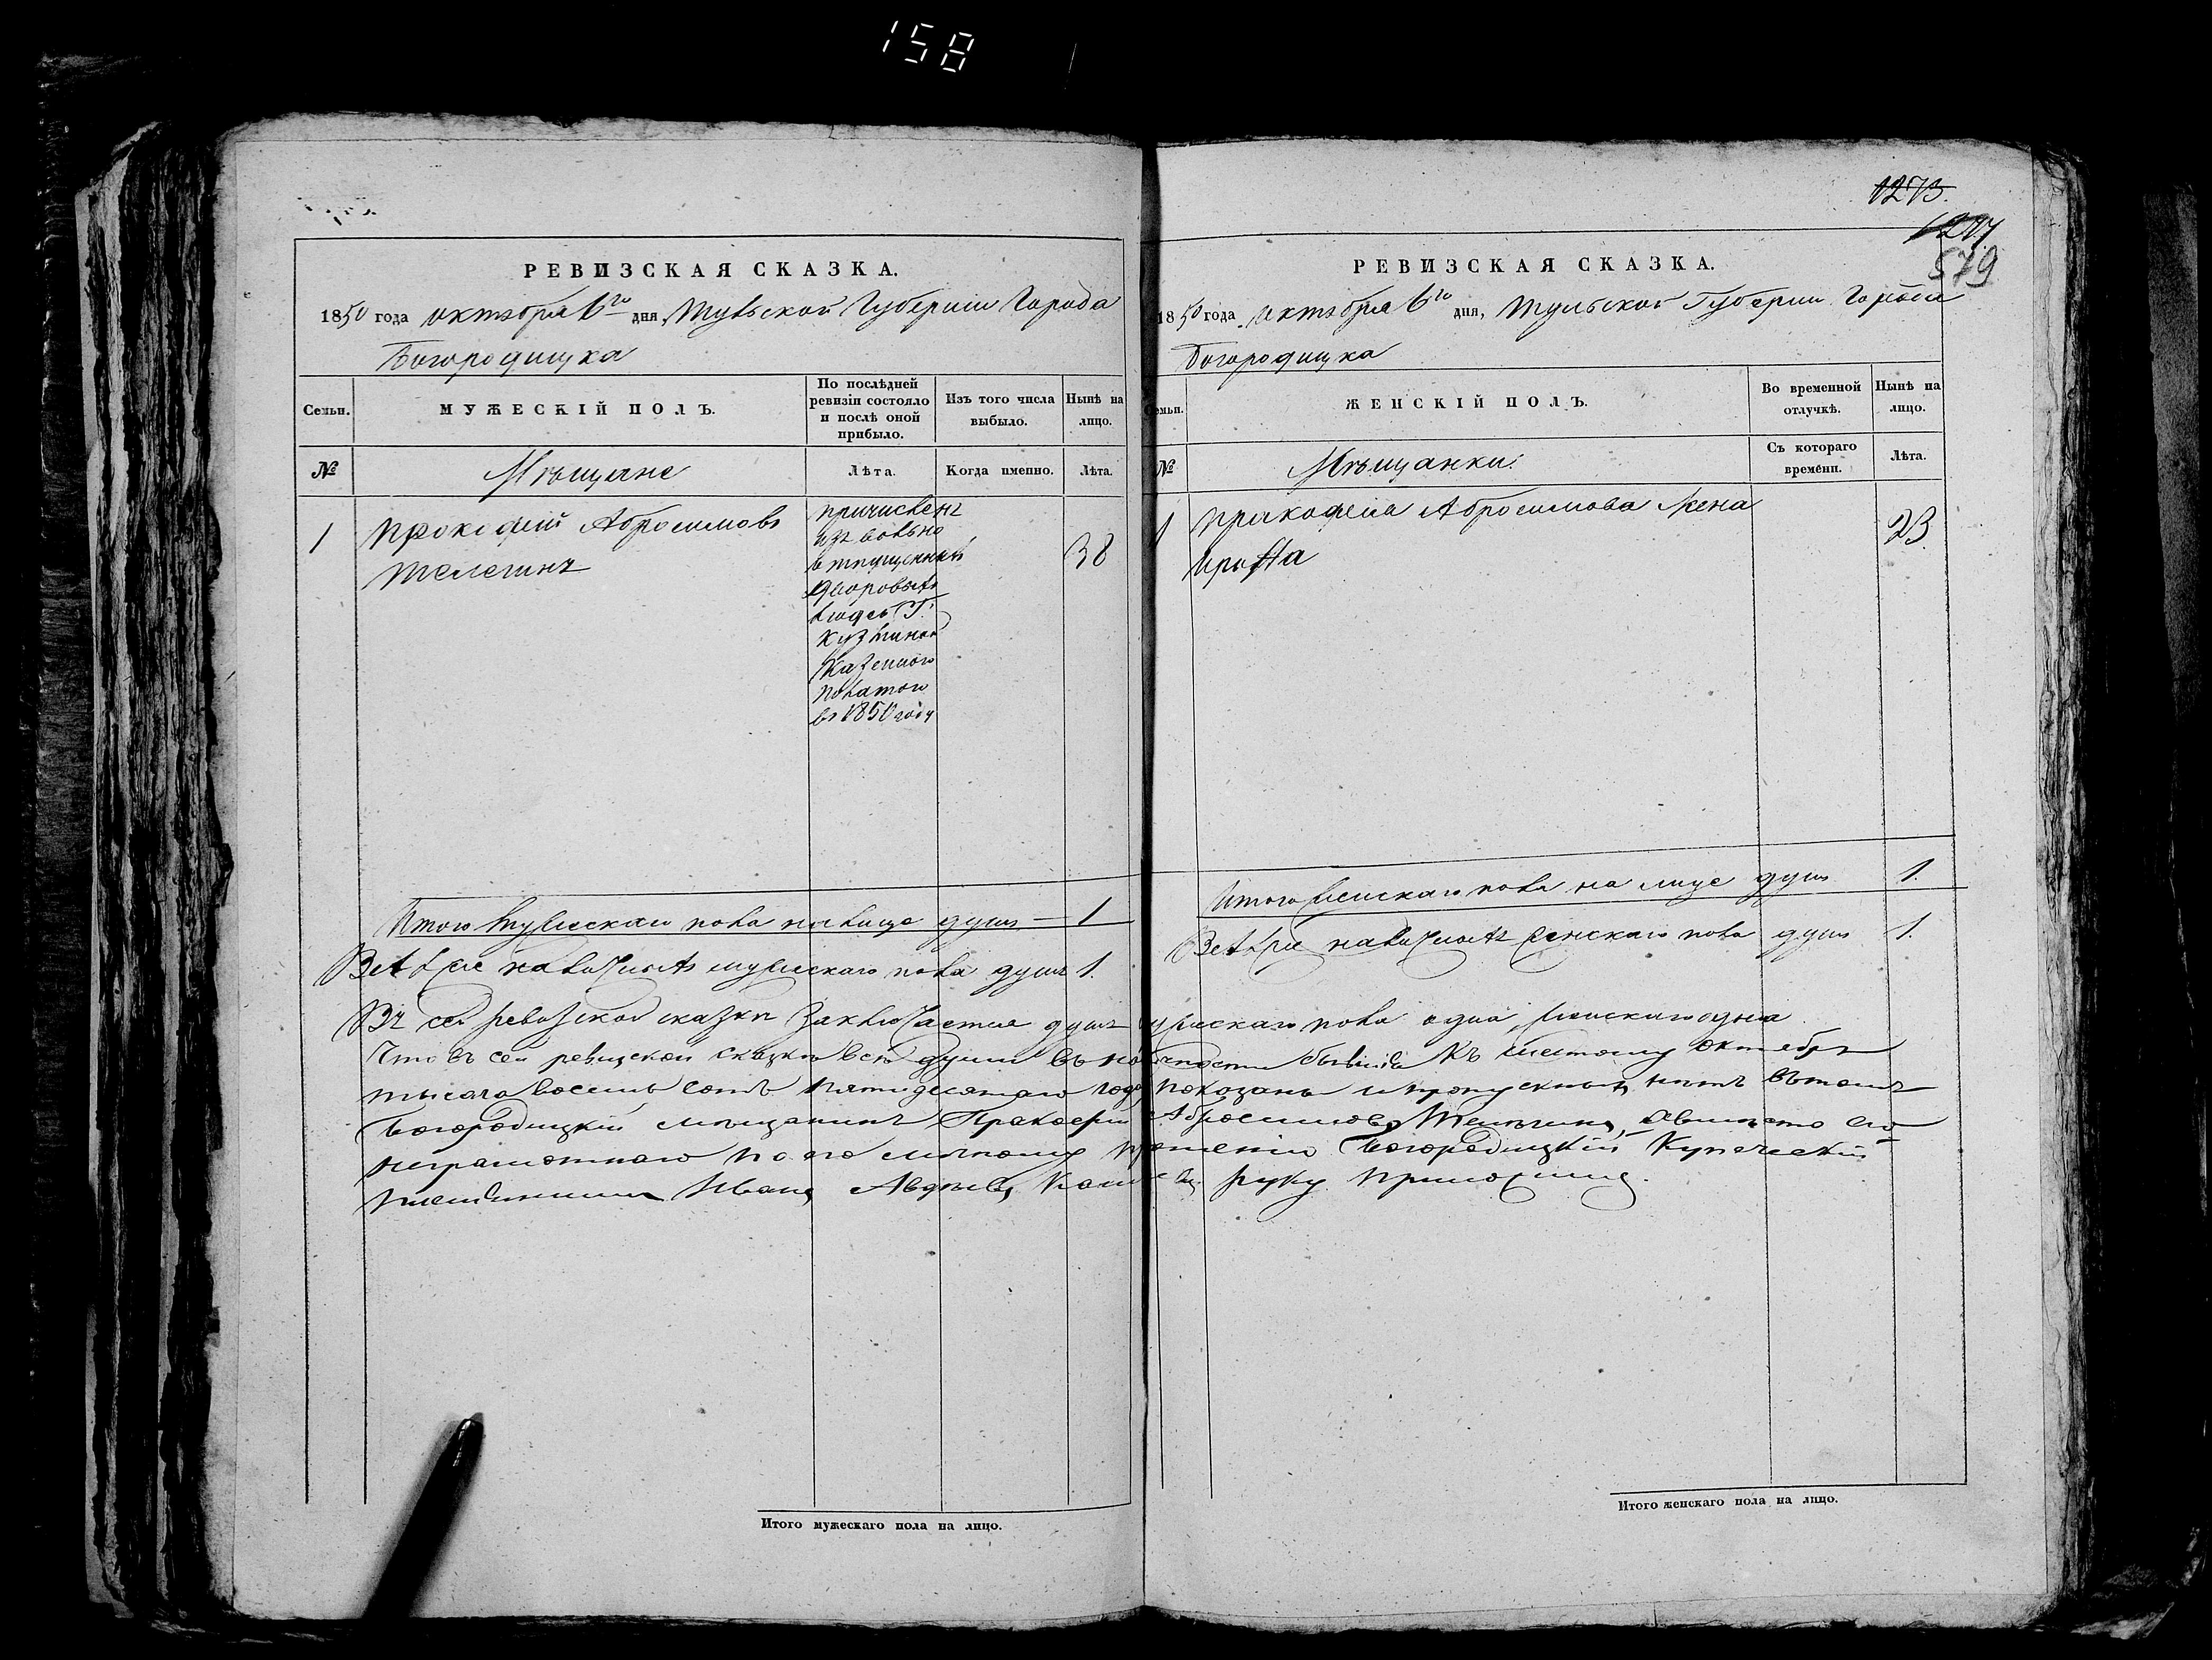 158
РЕВИЗСКАЯ СКАЗКА.
1850 года октября 6го дня, Тульской Губернiи Города
Богородицка
Семьи.
МУЖЕСКІЙ ПОЛЪ.
По послѣдней
ревизіи состояло
и послѣ оной
прибыло.
Изъ того числа
выбыло.
Нынѣ на
лицо.
№
Мѣщане
Лѣта.
Когда именно.
Лѣта.
1
Прокофий Абросимовъ
Телегинъ
причисленъ
изъ вольно
отпущенныхъ
дворовыхъ
людей Г.
Кузминой
Казенной
полатой
въ 1850 году
38
Итого мужескаго пола на лице душъ — 1
Всего же на лицо мужескаго пола душъ 1.
1273.
579
РЕВИЗСКАЯ СКАЗКА.
1850 года октября 6го дня, Тульской Губернiи Города
Богородицка
Семьи.
ЖЕНСКІЙ ПОЛЪ.
Во временной
отлучкѣ.
Нынѣ на
лицо.
№
Мѣщанки.
Съ котораго
времени.
Лѣта.
1
Прокофия Абросимова жена
23
Итого женскаго пола на лице душъ 1.
женскаго пола душъ 1.
Въ сей ревизской сказки заключается душъ мужескаго пола одна, женскаго одна
Что въ сей ревизской сказкѣ всѣ души въ наличности бывшiя къ шестому октября
тысяча восемь сотъ пятидесятаго года показаны и пропускныхъ нѣтъ въ томъ
Богородицкій мѣщанинъ Прокофий Абросимовъ Телегинъ, а вмѣсто его
неграмотнаго по его личному прошенiю Богородицкій Купеческій
племянникъ Иванъ Авдѣевъ руку приложилъ.
Итого мужескаго пола на лицо.
Итого женскаго пола на лицо.